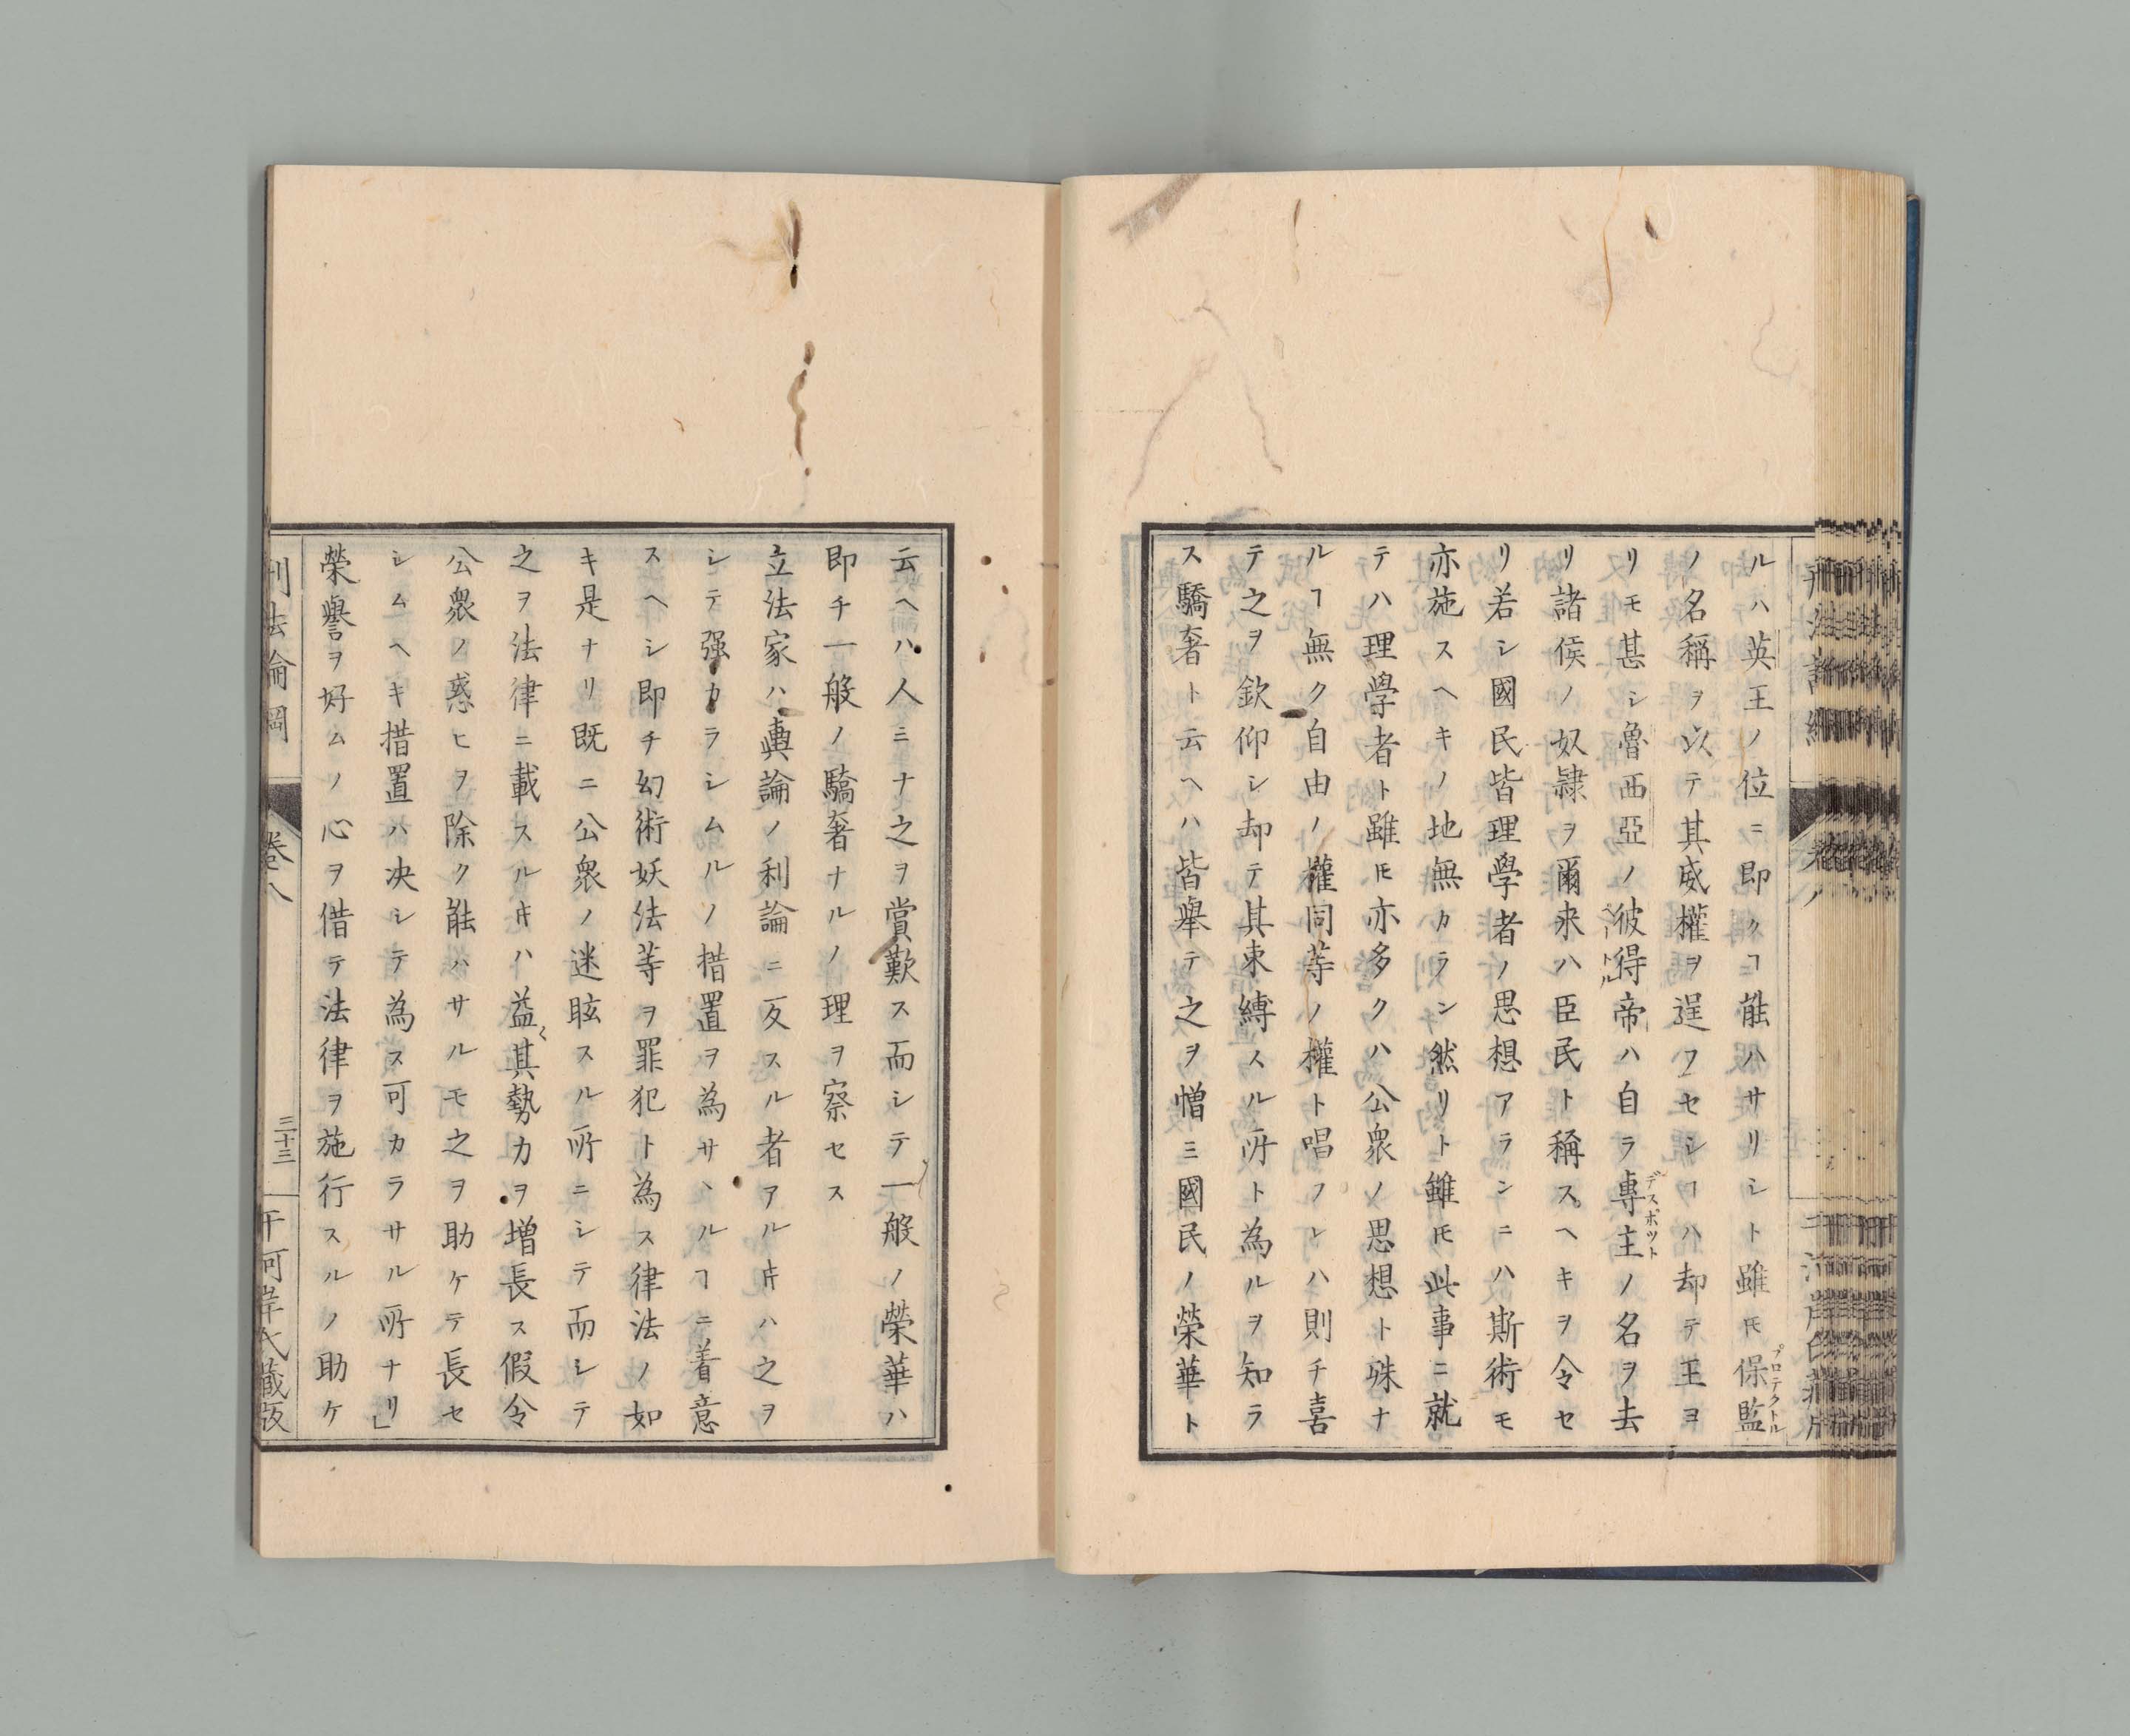 ルハ英王ノ位ニ即クヿ能ハサリシト雖𪜈保監プロテクトル
ノ名稱ヲ以テ其威權ヲ逞フセシヿハ却テ王ヨ
リモ甚シ魯西亞ノ彼得ペートル帝ハ自ラ專主デスポットノ名ヲ去
リ諸侯ノ奴隷ヲ爾来ハ臣民ト稱スヘキヲ令セ
リ若シ國民皆理學者ノ思想アランニハ斯術モ
亦施スヘキノ地無カラン然リト雖𪜈此事ニ就
テハ理學者ト雖𪜈亦多クハ公衆ノ思想ト殊ナ
ルヿ無ク自由ノ權同等ノ權ト唱フレハ則チ喜
テ之ヲ欽仰シ却テ其束縛スル所ト為ルヲ知ラ
ス驕奢ト云ヘハ皆擧テ之ヲ憎ミ國民ノ榮華ト
云ヘハ人ミナ之ヲ賞歎ス而シテ一般ノ榮華ハ
即チ一般ノ驕奢ナルノ理ヲ察セス
立法家ハ輿論ノ利論ニ反スル者アル𪜈ハ之ヲ
シテ强カラシムルノ措置ヲ為サヽルヿニ着意
スヘシ即チ幻術妖法等ヲ罪犯ト為ス律法ノ如
キ是ナリ既ニ公衆ノ迷眩スル所ニシテ而シテ
之ヲ法律ニ載スル𪜈ハ益〻其勢力ヲ增長ス假令
公衆ノ惑ヒヲ除ク能ハサルモ之ヲ助ケテ長セ
シムヘキ措置ハ决シテ為ス可カラサル所ナリ」
榮譽ヲ好ムノ心ヲ借テ法律ヲ施行スルノ助ケ
刑法論綱
卷八
三十三
干河岸氏藏版